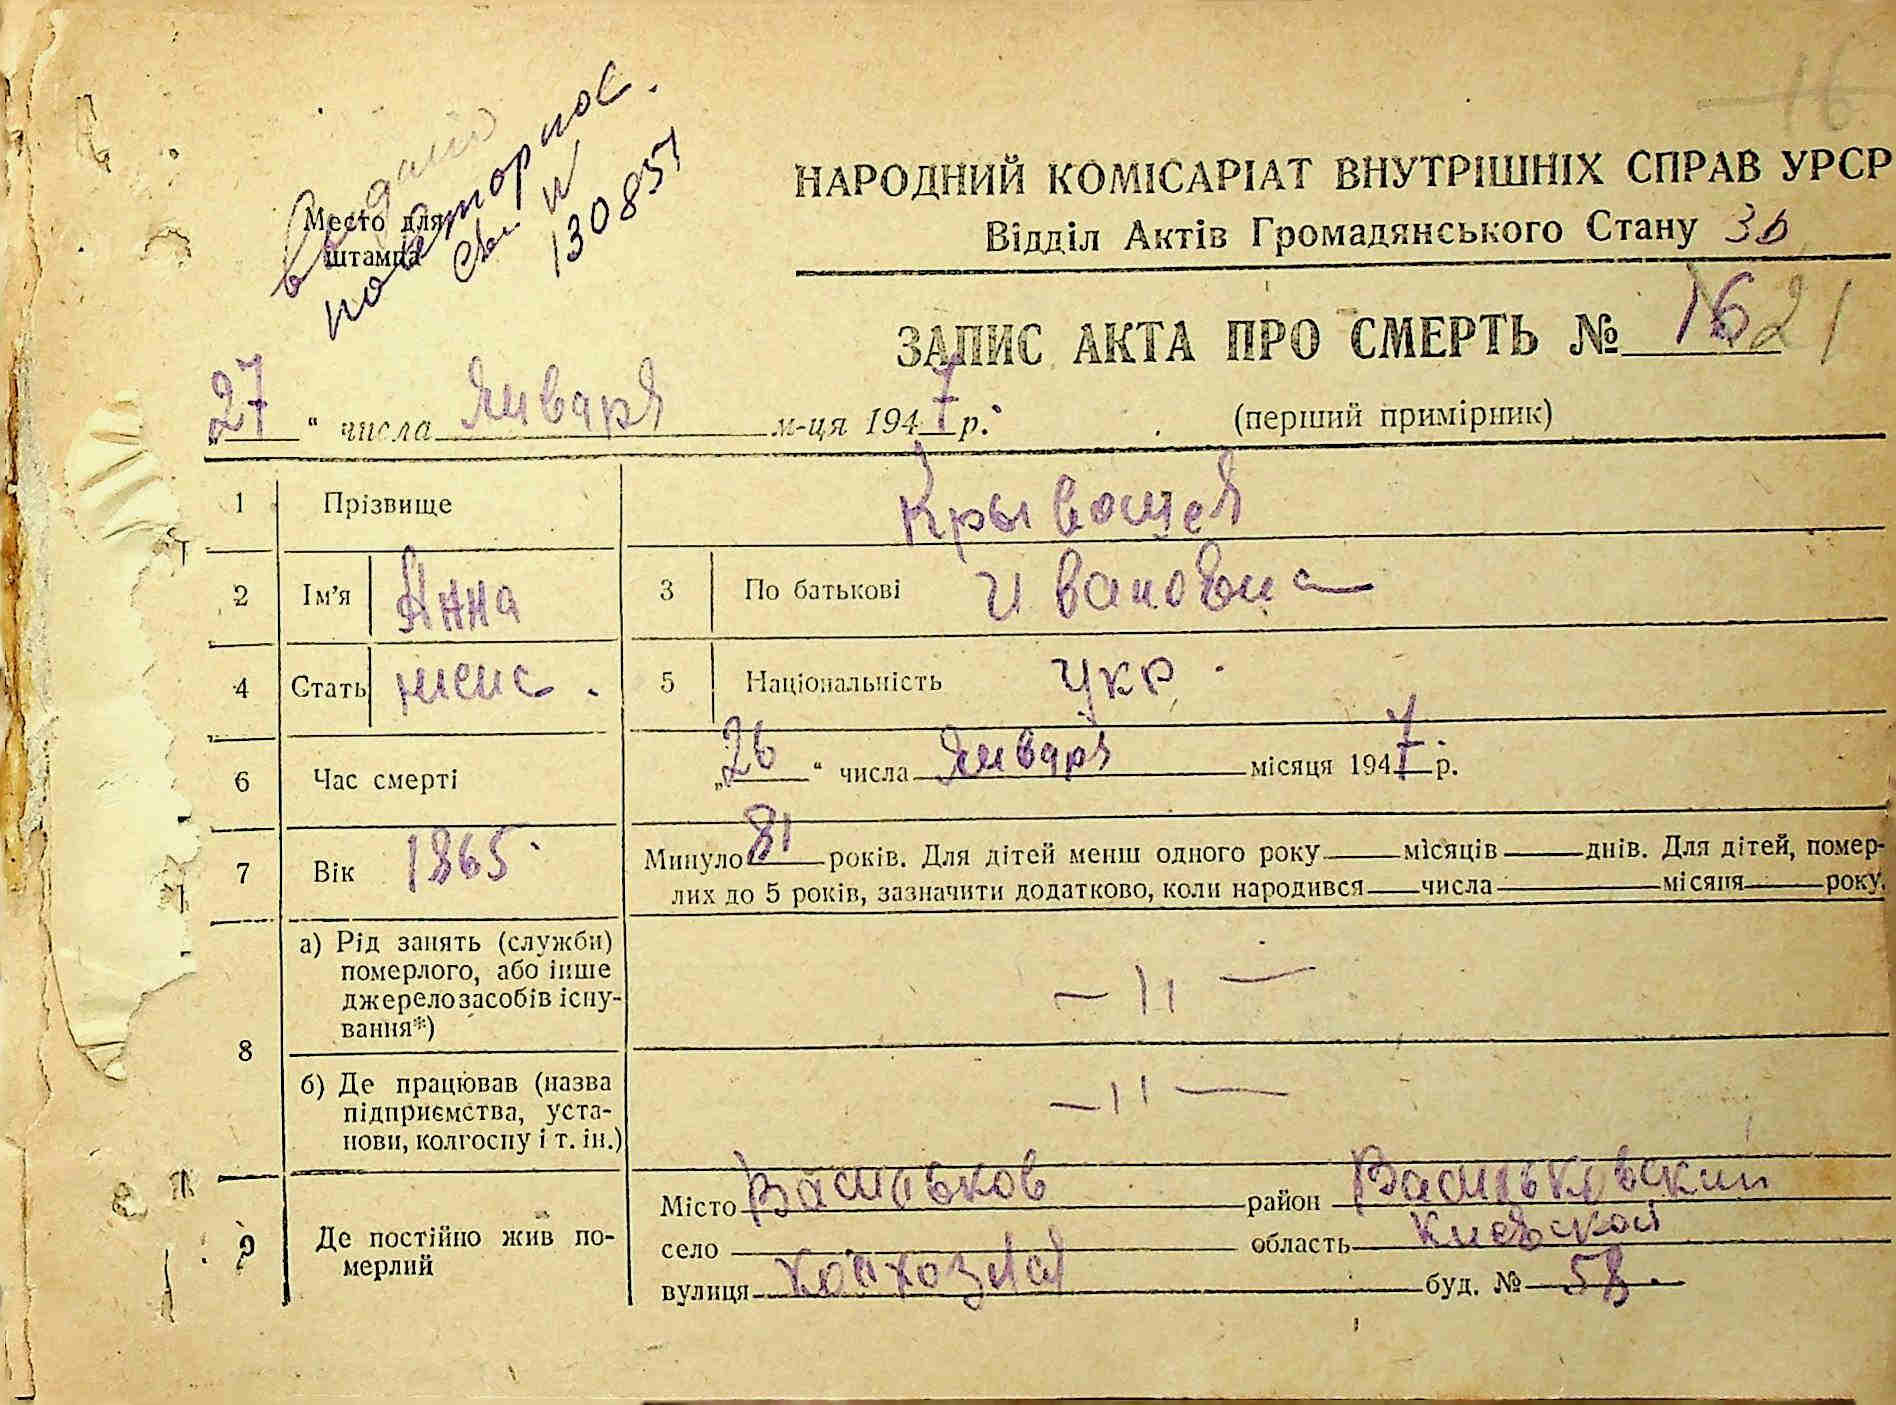 16
повторное
Св. N
130851
Место для
штампа
НАРОДНИЙ КОМІСАРІАТ ВНУТРІШНІХ СПРАВ УРСР
Відділ Актів Громадянського Стану
ЗАПИС АКТА ПРО СМЕРТЬ № 16 21
„27“ числа Января м-ця 1947 р.
(перший примірник)
1 Прізвище Крывошея
2 Ім'я Анна 3 По батькові Ивановна
4 Стать женс. 5 Національність Укр.
6 Час смерті „26“ числа Января місяця 1947 р.
7 Вік 1865. Минуло 81 років. Для дітей менш одного року ___ місяців ___ днів. Для дітей, помер-
лих до 5 років, зазначити додатково, коли народився ___ числа ___ місяця ___ року.
8 а) Рід занять (служби)
померлого, або інше
джерело засобів існу-
вання*)
— 11 —
б) Де працював (назва
підприємства, уста-
нови, колгоспу і т. ін.)
— 11 —
9 Де постійно жив по-
мерлий
Місто Васильков район Васильковский
село ___ область Киевской
вулиця буд. № 58.